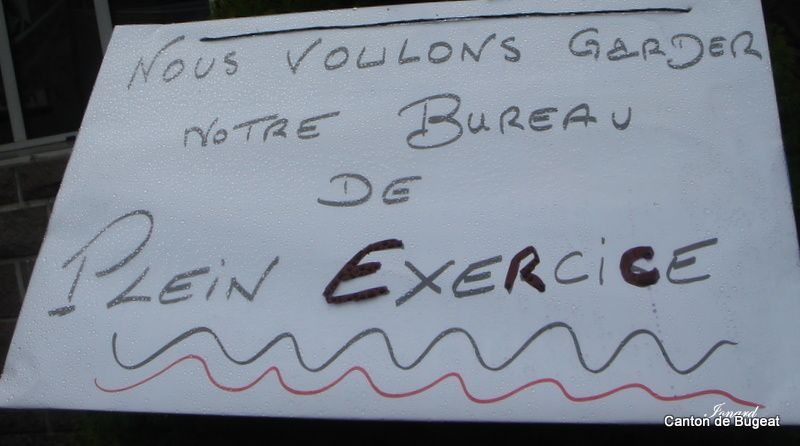 NOUS VOULONS GARDER
NOTRE BUREAU
DE
PLEIN EXERCICE
Jonard
Canton de Bugeat